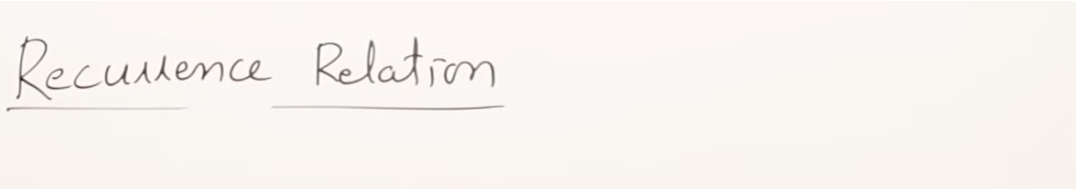 Recurrence Relation